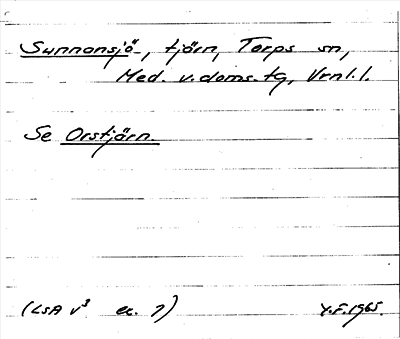 Sunnansjö-, tjärn, Torps sn,
Med. v. doms. tg, Vrnl.l.
Se Orstjärn.
(LSA V³ ec. 7) Y.F. 1965.